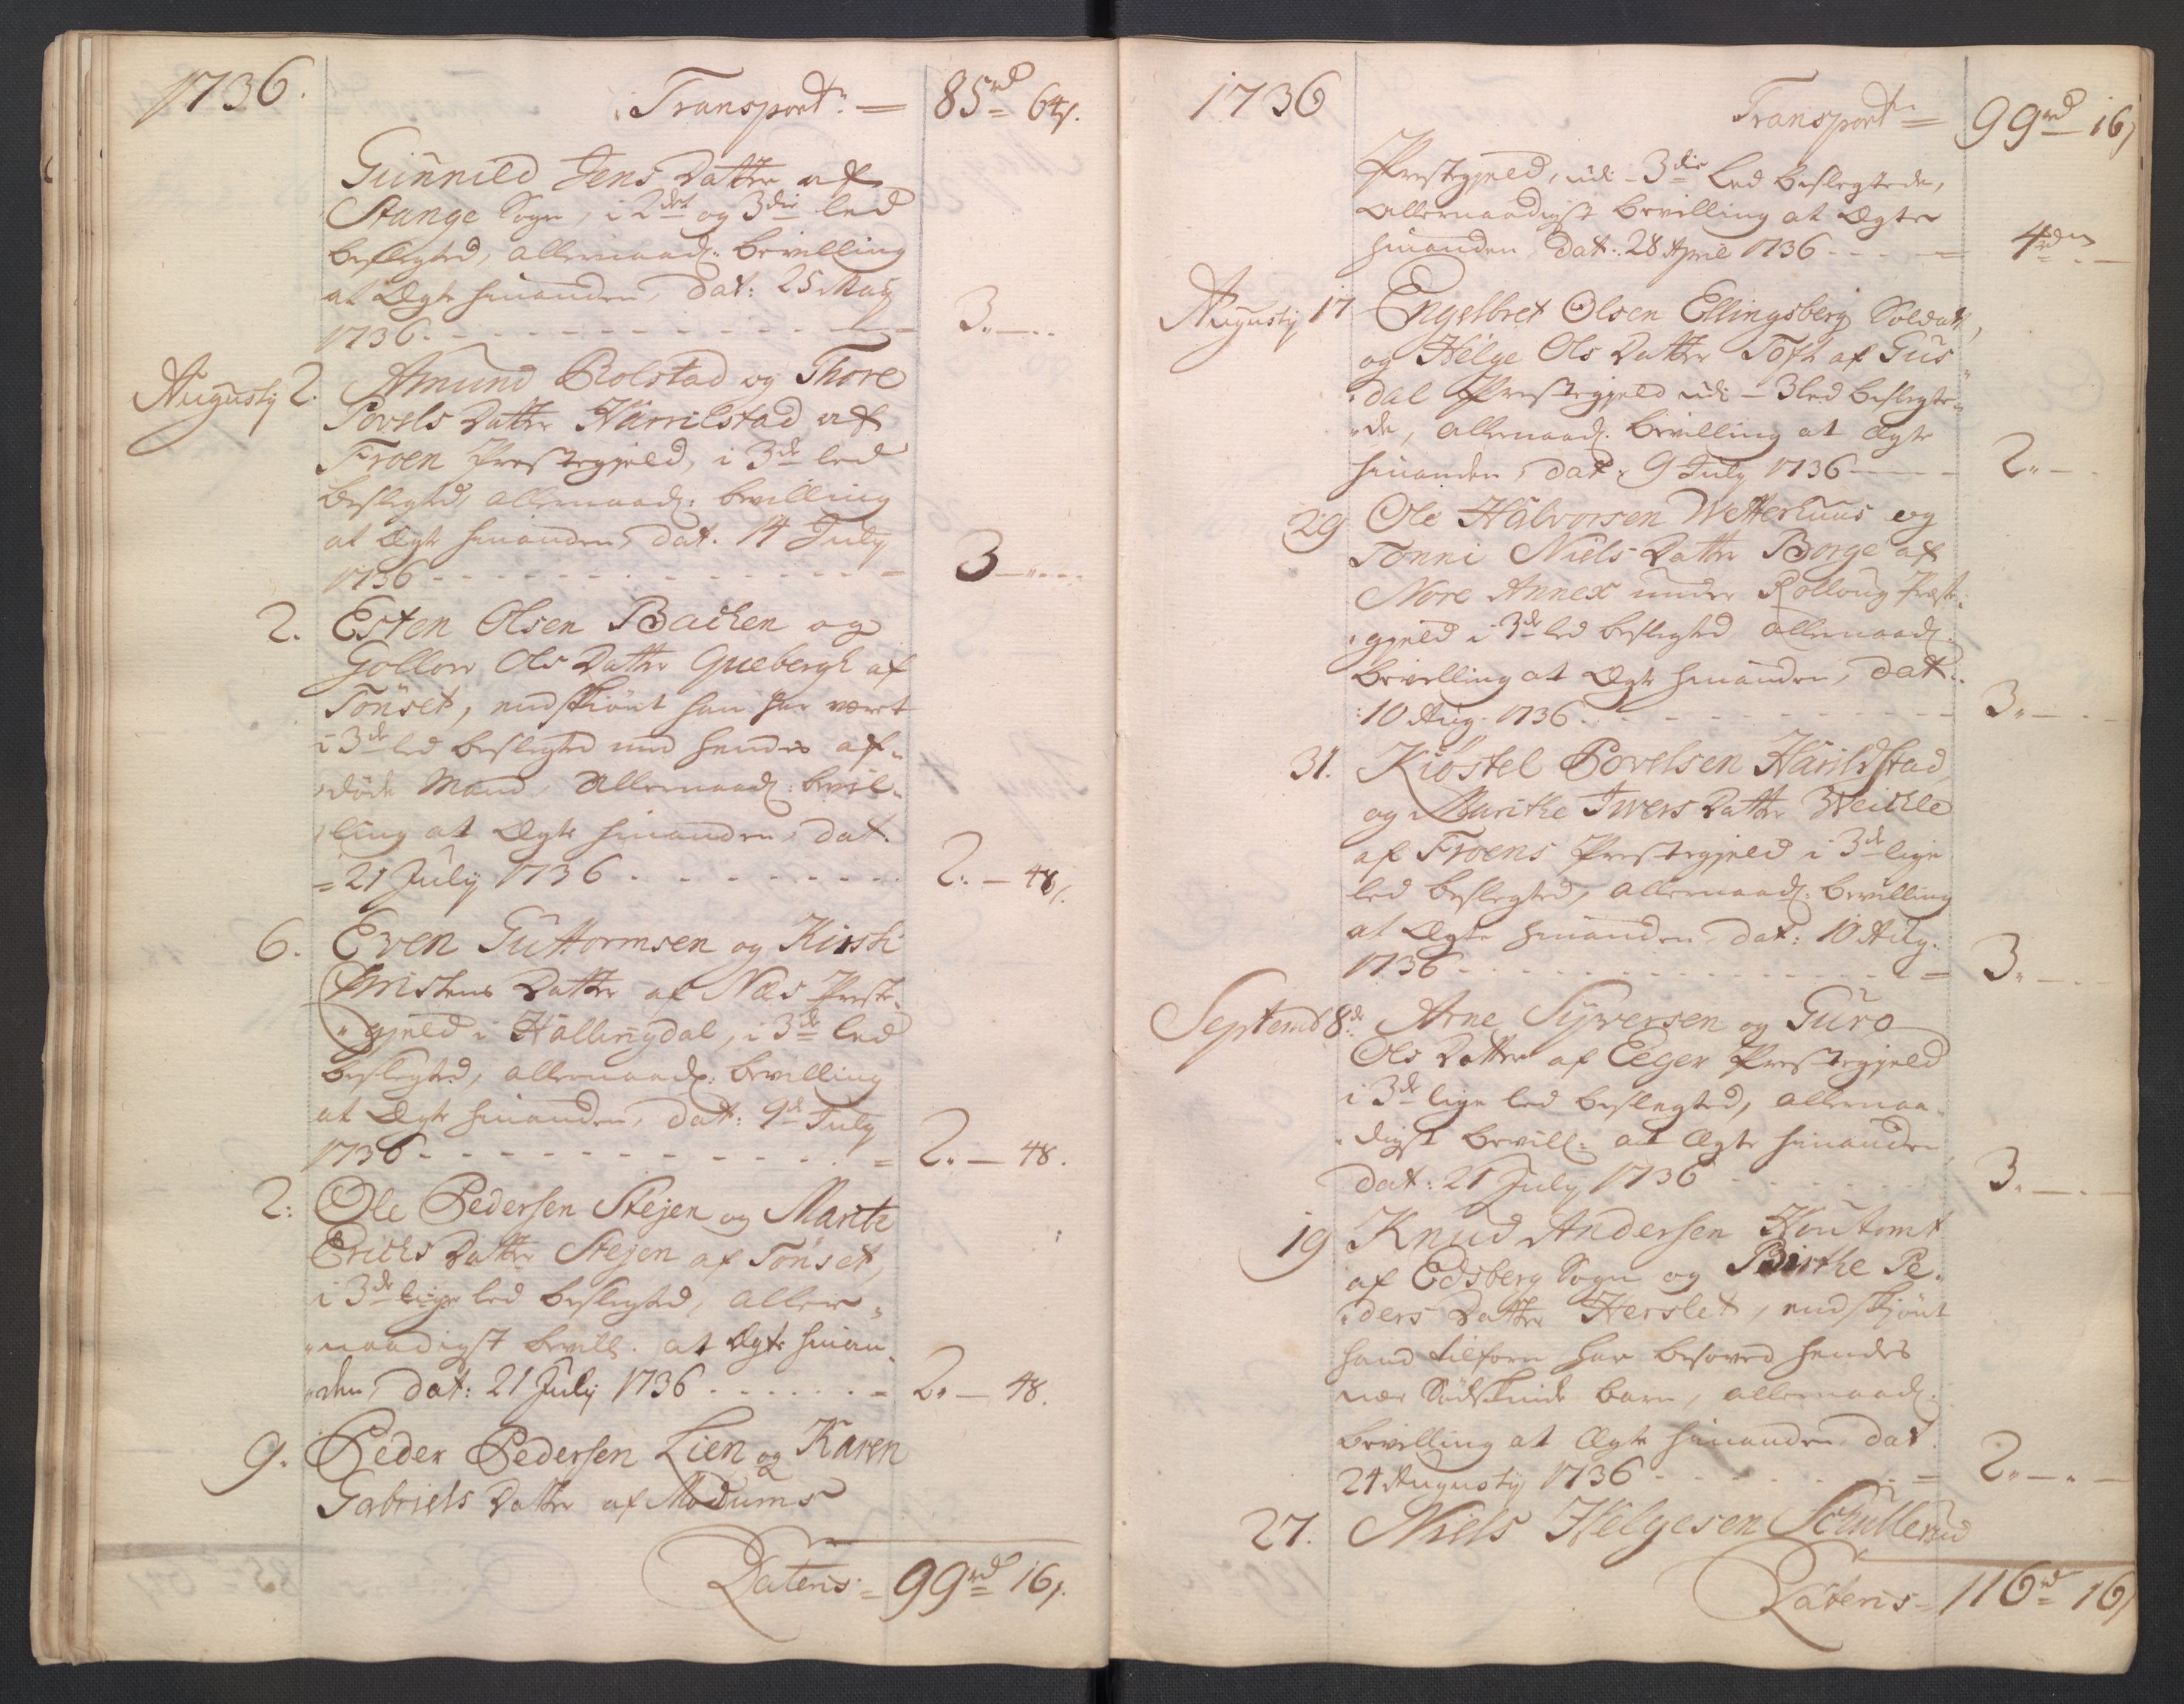 1736.
Transport. = 85 rd 64 s.
Gunnild Jens Datter af
Stange Sogn, i 2det og 3die led
beslegted, allernaad: bevilling
at Ægte hinanden, dat: 25 Maij
1736. - - - 3. — . .
Augustij 2. Amund Rolstad og Thore
Povels Datter Harrilstad af
Froen Præstegjeld, i 3de led
beslegted, allernaad: bevilling
at Ægte hinanden, dat. 14 July
1736 - - - 3 — . . .
2. Esten Olsen Bachen og
Gollow Ols Datter Quebergh af
Tönset, endskiönt han har været
i 3de led beslegted med hendes af-
döde Mand, Allernaad: bevil-
ling at Ægte hinanden, dat.
21 July 1736 . - - - 2. — 48 s.
6. Even Guttormsen og Kirsti
Christens Datter af Næs Præste-
gjeld i Hallingdal, i 3de led
beslegted, allernaad: bevilling
at Ægte hinanden, dat: 9de July
1736 - - - = 2. — 48.
2: Ole Pedersen Stejen og Marite
Erichs Datter Stejen af Tönset,
i 3de lige led beslegted, aller-
naadigst bevill. at Ægte hinan-
den, dat: 21 July 1736 . - - - = 2. — 48.
9. Peder Pedersen Lien og Karen
Gabriels Datter af Modums
Lateris = 99 rd 16 s.
1736
Transport = 99 rd 16 s
Præstegjeld, udi 3die Led beslegtede,
allernaadigst bevilling at Ægte
hinanden, dat: 28 April 1736 - - - = 4 rd — . —
Augustij 17 Engelbret Olsen Ellingsberg Soldat,
og Helge Ols Datter Toft af Gus
dal Præstegjeld udi 3 led beslegte-
de, allernaad: bevilling at ægte
hinanden, dat: 9 July 1736 - - - 2. — .
29 Ole Halvorsen Wetterhuus og
Tönni Niels Datter Borge af
Nore Annex under Rolloug Præste-
gjeld i 3de led beslegted allernaad:
bevilling at Ægte hinanden, dat:
10 Aug. 1736. - - - 3. — . —
31. Kiöstel Povelsen Harildstad
og Marithe Iwers Datter Weichle
af Froens Præstegjeld i 3de lige
led beslegted, allernaad: bevilling
at Ægte hinanden, dat: 10 Aug.
1736 - - - = 3. — . —
Septemb 8de Arne Syversen og Guro
Ols Datter af Eeger Præstegjeld
i 3de lige led beslegted, allernaa-
digst bevill: at Ægte hinanden
dat: 21 July 1736 - - - 3. — . —
19 Knud Andersen Houtomt
af Edsberg Sogn og Birthe Pe-
ders Datter Herslet, endskjönt
hand tilforn har besoved hendes
nær Södskende barn, allernaad:
bevilling at Ægte hinanden, dat.
24 Augustij 1736 - - - = 2. — . —
27. Niels Helgesen Schullerud
Lateris = 116 rd 16 s